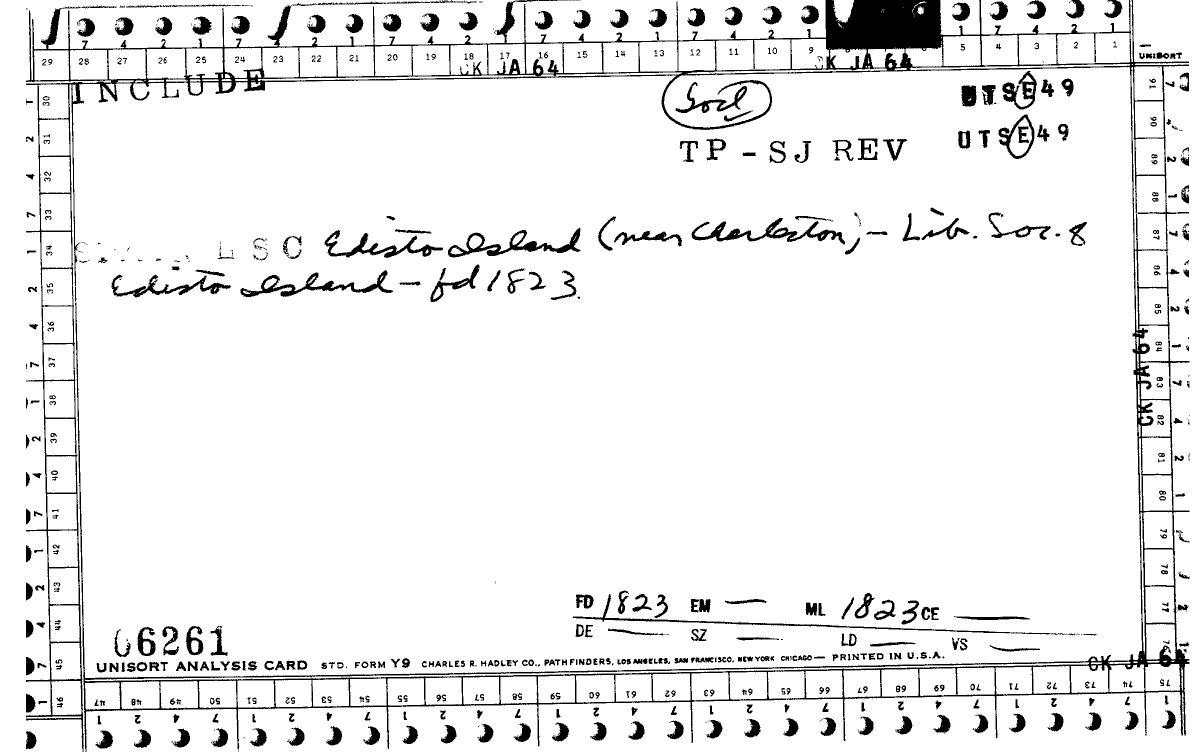 7 4 2 1 7 4 2 1 7 4 2 1 7 4 2 1 7 4 2 1 1 7 4 2 1
29 28 27 26 25 24 23 22 21 20 19 18 17 16 15 14 13 12 11 10 9 5 4 3 2 1 UNISORT
CK JA 64 CK JA 64
INCLUDE
Socl UTSE49
UTSE49
TP - SJ REV
L S C Edisto Island (near Charleston) - Lib. Soc. of
Edisto Island - fd 1823.
CK JA 64
FD 1823 EM — ML 1823 CE —
DE — SZ — LD — VS —
06261
UNISORT ANALYSIS CARD STD. FORM Y9 CHARLES R. HADLEY CO., PATHFINDERS, LOS ANGELES, SAN FRANCISCO, NEW YORK CHICAGO — PRINTED IN U.S.A.
CK JA 64
47 48 49 50 51 52 53 54 55 56 57 58 59 60 61 62 63 64 65 66 67 68 69 70 71 72 73 74 75
1 2 4 7 1 2 4 7 1 2 4 7 1 2 4 7 1 2 4 7 1 2 4 7 1 2 4 7 1